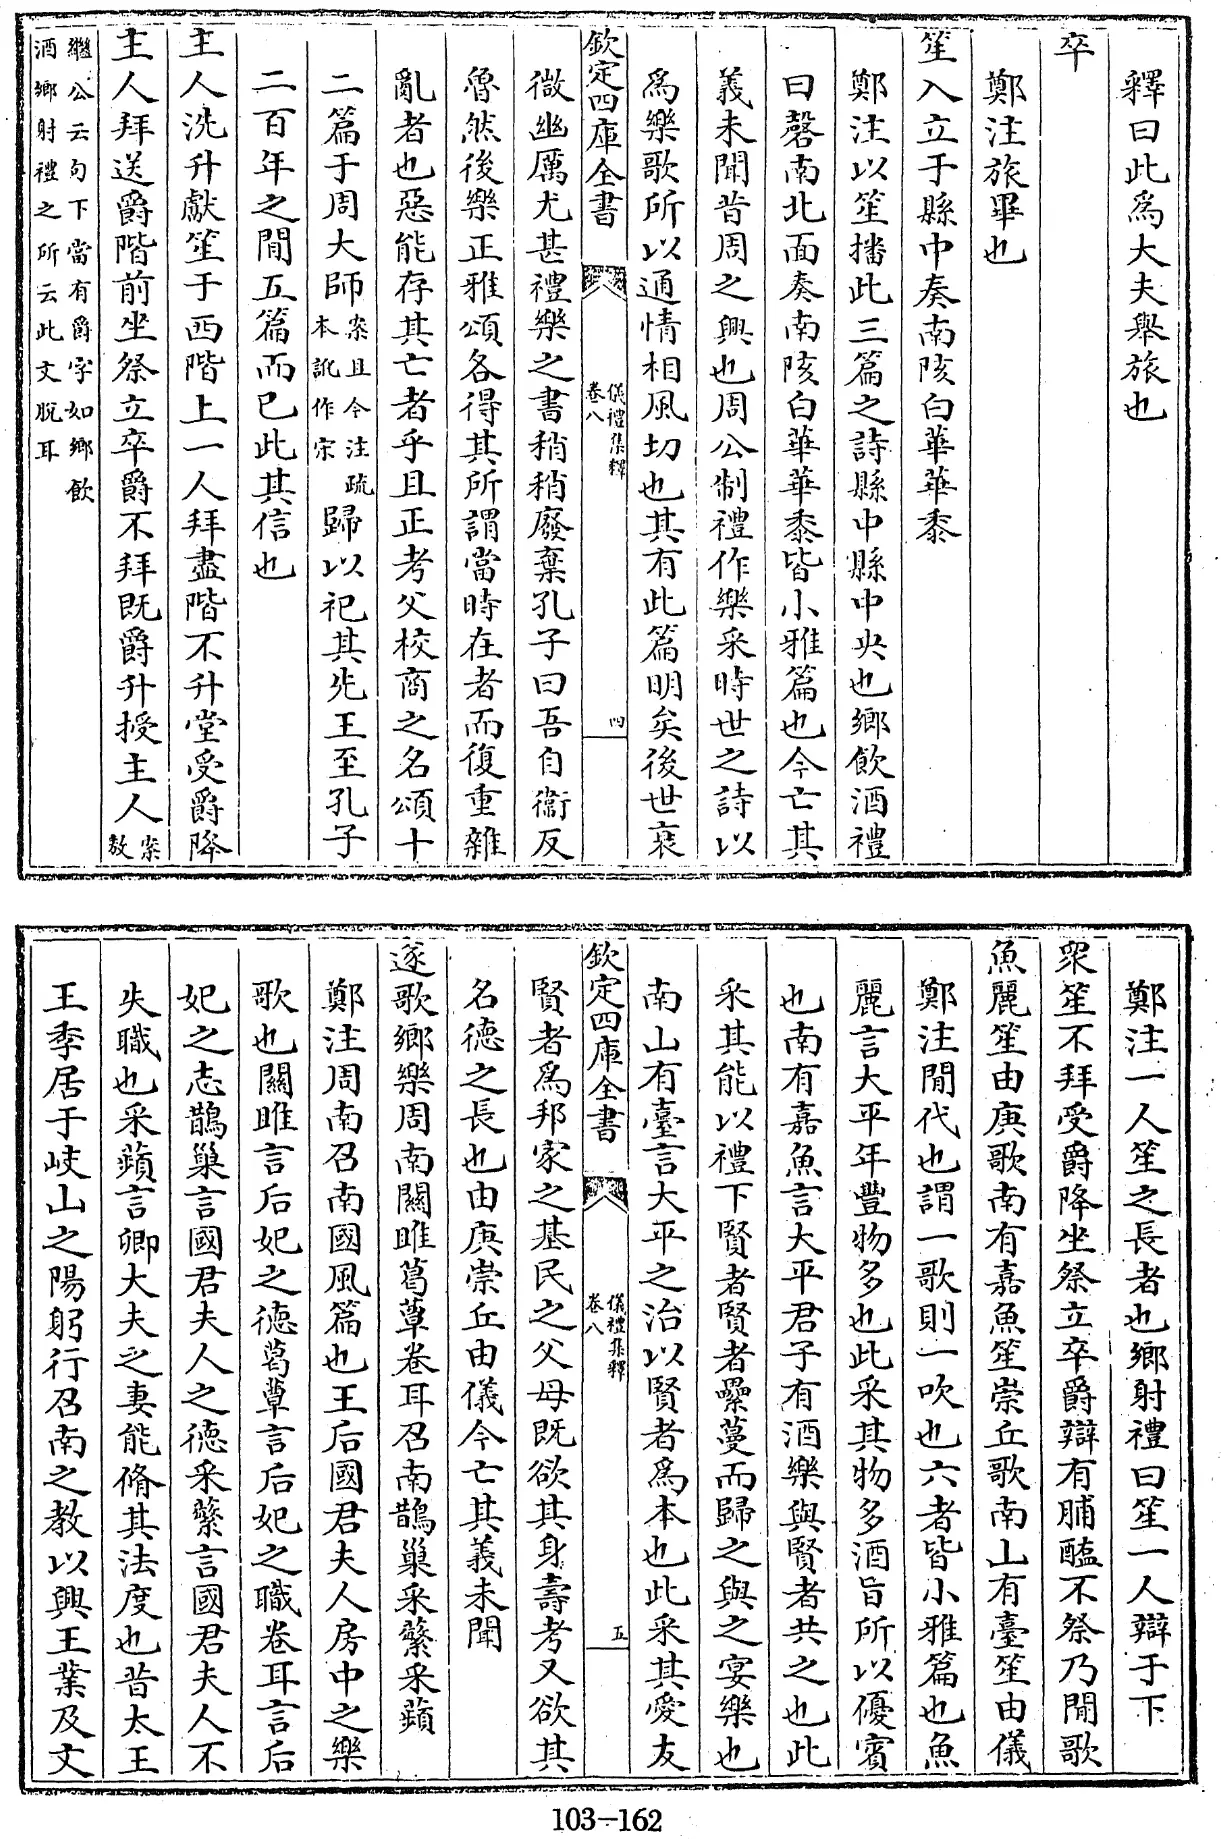 釋曰此爲大夫舉旅也
卒
鄭注旅畢也
笙入立于縣中奏南陔白華華黍
鄭注以笙播此三篇之詩縣中縣中央也鄉飲酒禮
曰磬南北面奏南陔白華華黍皆小雅篇也今亡其
義未聞昔周之興也周公制禮作樂采時世之詩以
爲樂歌所以通情相風切也其有此篇明矣後世衰
欽定四庫全書
儀禮集釋
卷八
四
微幽厲尤甚禮樂之書稍稍廢棄孔子曰吾自衞反
魯然後樂正雅頌各得其所謂當時在者而復重雜
亂者也惡能存其亡者乎且正考父校商之名頌十
二篇于周大師案且今注疏本訛作宋歸以祀其先王至孔子
二百年之閒五篇而已此其信也
主人洗升獻笙于西階上一人拜盡階不升堂受爵降
主人拜送爵階前坐祭立卒爵不拜既爵升授主人案敖
繼公云句下當有爵字如鄉飲
酒鄉射禮之所云此文脫耳
鄭注一人笙之長者也鄉射禮曰笙一人辯于下
衆笙不拜受爵降坐祭立卒爵辯有脯醢不祭乃閒歌
魚麗笙由庚歌南有嘉魚笙崇丘歌南山有臺笙由儀
鄭注閒代也謂一歌則一吹也六者皆小雅篇也魚
麗言大平年豐物多也此采其物多酒旨所以優賓
也南有嘉魚言大平君子有酒樂與賢者共之也此
采其能以禮下賢者賢者纍蔓而歸之與之宴樂也
南山有臺言大平之治以賢者爲本也此采其愛友
欽定四庫全書
儀禮集釋
卷八
五
賢者爲邦家之基民之父母既欲其身壽考又欲其
名德之長也由庚崇丘由儀今亡其義未聞
遂歌鄉樂周南關雎葛蕈卷耳召南鵲巢采蘩采蘋
鄭注周南召南國風篇也王后國君夫人房中之樂
歌也關雎言后妃之德葛蕈言后妃之職卷耳言后
妃之志鵲巢言國君夫人之德采蘩言國君夫人不
失職也采蘋言卿大夫之妻能脩其法度也昔太王
王季居于岐山之陽躬行召南之教以興王業及文
103-162